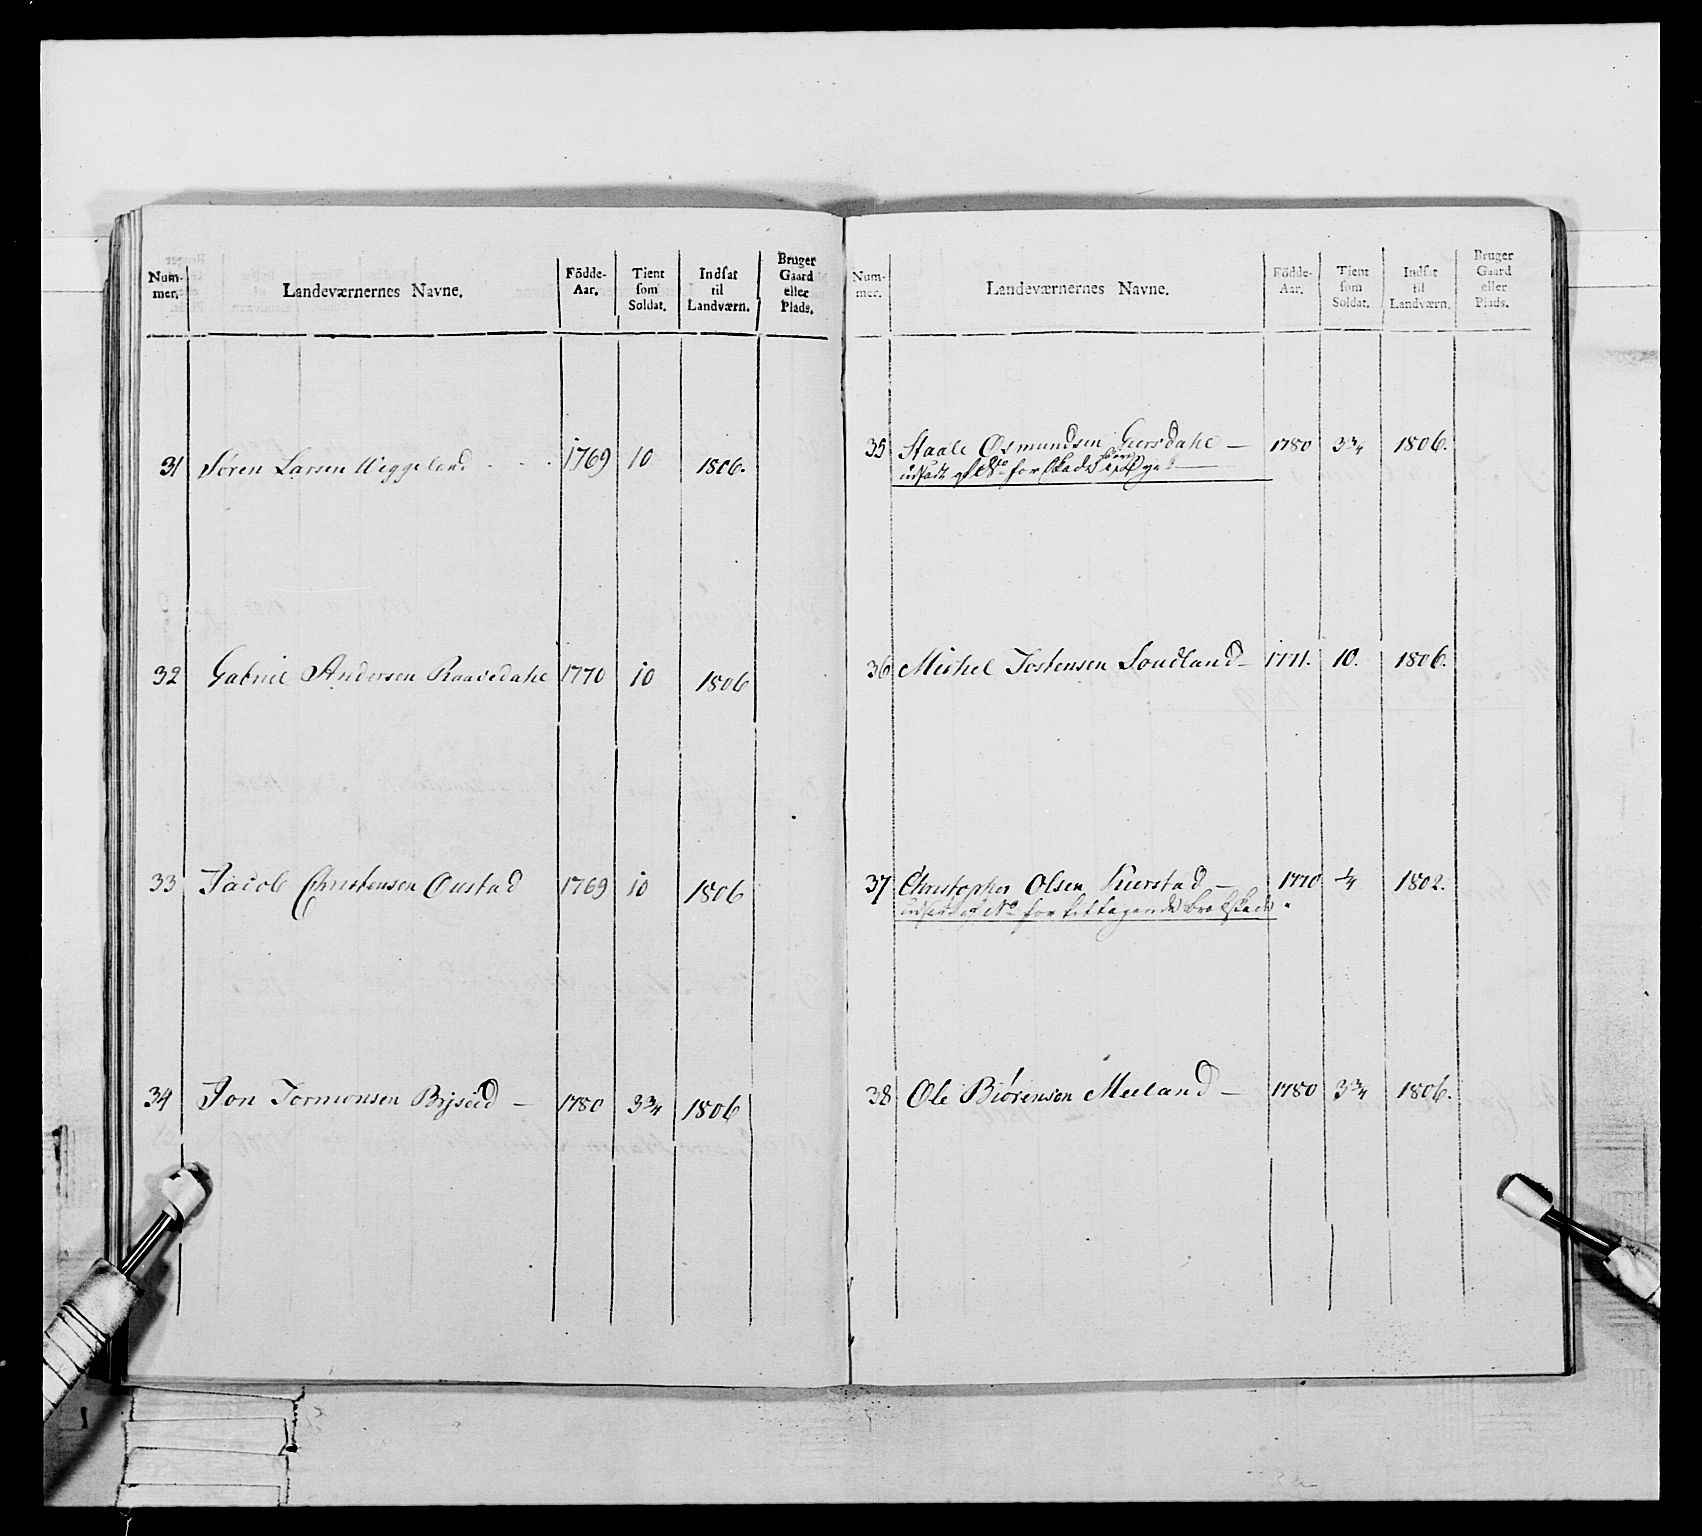 Num-
mer.
Landeværnernes Navne.
Födde-
Aar.
Tient
som
Soldat.
Indsat
til
Landværn.
Bruger
Gaard
eller
Plads.
31 Søren Larsen Wiggeland - - - 1769 10 1806.
32 Gabriel Andersen Raavedahl 1770 10 1806
33 Jacob Christensen Oustad 1769 10 1806
34 Jon Tormonsen 1780 3¾ 1806
Num-
mer.
Landeværnernes Navne.
Födde-
Aar.
Tient
som
Soldat.
Indsat
til
Landværn.
Bruger
Gaard
eller
Plads.
35 Staale Osmundsen Giersdahl — 1780 3¾ 1806.
udsadt for
36 Michel Jostensen Loudland — 1771. 10. 1806.
37 Christopher Olsen Kierstad — 1770 ¼ 1802.
udsadt for
38 Ole Biørensen Meeland — 1780 3¾ 1806.